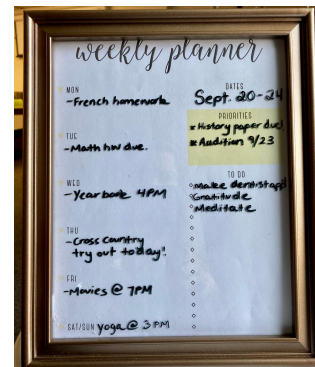 weekly planner
MON
-French homework
TUE
-Math hw due.
WED
-Yearbook 4PM
THU
-Cross Country
try out today!!
FRI
-Movies @ 7PM
SAT/SUN yoga @ 3PM
DATES
Sept. 20-24
PRIORITIES
* History paper due!
* Audition 9/23
TO DO
make dentist app
Gratitude
Meditate